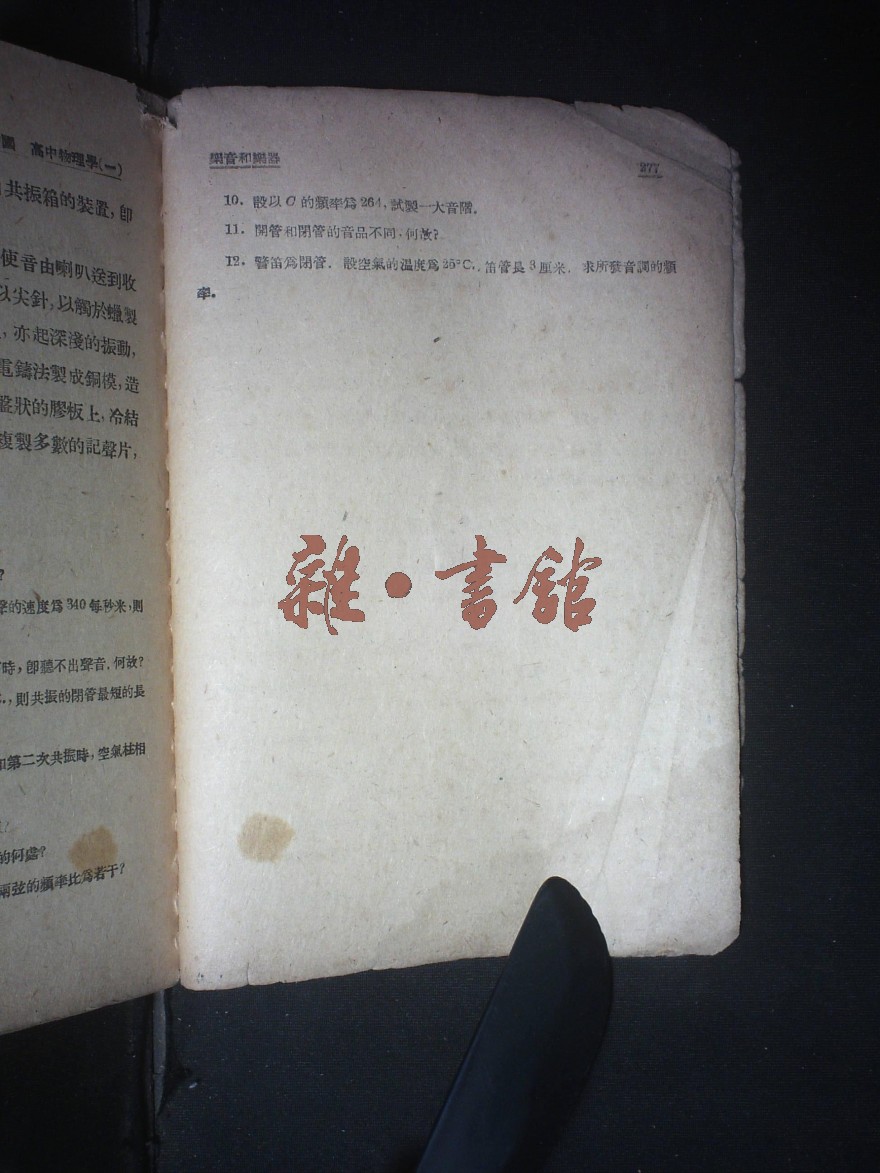 圖 高中物理學(一)
共振箱的裝置,卽
使音由喇叭送到收
以尖針,以觸於蠟製
,亦起深淺的振動,
電鑄法製成銅模,造
盤狀的膠板上,冷結
複製多數的記聲片,
?
的速度爲 340 每秒米,則
時,卽聽不出聲音,何故?
,則共振的閉管最短的長
和第二次共振時,空氣柱相
的何處?
兩弦的頻率比爲若干?
樂音和樂器 277
10. 設以 C 的頻率爲 264,試製一大音階.
11. 開管和閉管的音品不同,何故?
12. 警笛爲閉管. 設空氣的溫度爲 25°C., 笛管長 3 厘米, 求所發音調的頻
率.
雜·書館